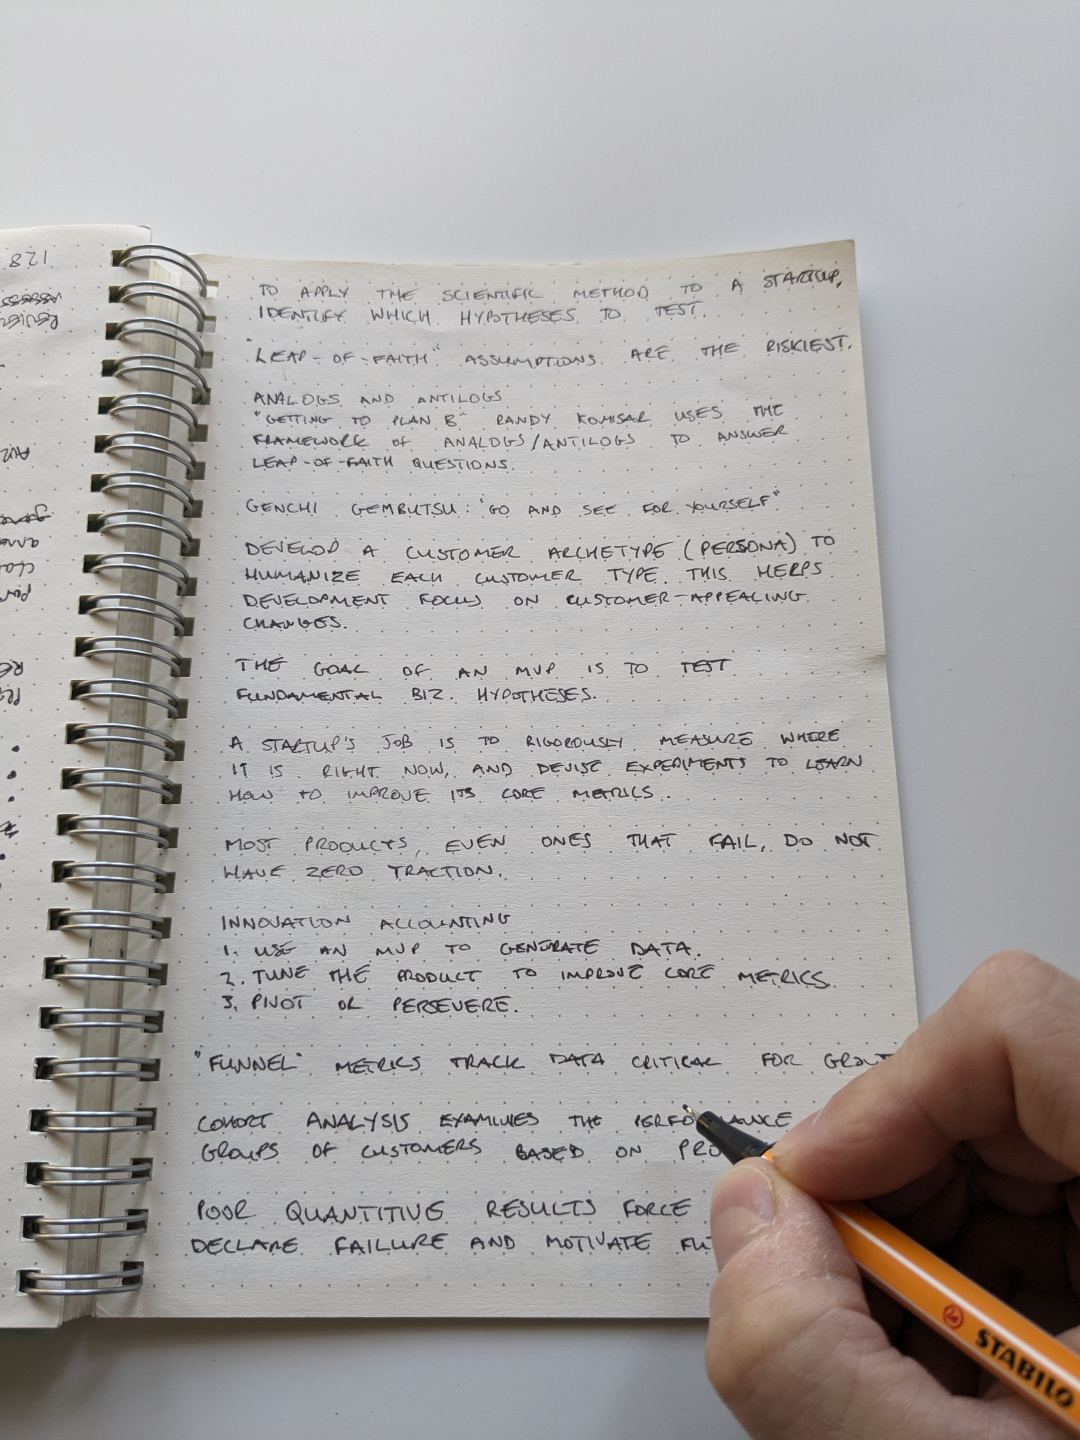 128
TO APPLY THE SCIENTIFIC METHOD TO A STARTUP,
IDENTIFY WHICH HYPOTHESES TO TEST.
"LEAP-OF-FAITH" ASSUMPTIONS ARE THE RISKIEST.
ANALOGS AND ANTILOGS
"GETTING TO PLAN B" RANDY KOMISAR USES THE
FRAMEWORK OF ANALOGS/ANTILOGS TO ANSWER
LEAP-OF-FAITH QUESTIONS.
GENCHI GEMBUTSU: "GO AND SEE FOR YOURSELF"
DEVELOP A CUSTOMER ARCHETYPE (PERSONA) TO
HUMANIZE EACH CUSTOMER TYPE. THIS HELPS
DEVELOPMENT FOCUS ON CUSTOMER-APPEALING
CHANGES.
THE GOAL OF AN MVP IS TO TEST
FUNDAMENTAL BIZ. HYPOTHESES.
A STARTUP'S JOB IS TO RIGOROUSLY MEASURE WHERE
IT IS RIGHT NOW, AND DEVISE EXPERIMENTS TO LEARN
HOW TO IMPROVE ITS CORE METRICS.
MOST PRODUCTS, EVEN ONES THAT FAIL, DO NOT
HAVE ZERO TRACTION.
INNOVATION ACCOUNTING
1. USE AN MVP TO GENERATE DATA.
2. TUNE THE PRODUCT TO IMPROVE CORE METRICS.
3. PIVOT OR PERSEVERE.
"FUNNEL" METRICS TRACK DATA CRITICAL FOR
COHORT ANALYSIS EXAMINES THE
GROUPS OF CUSTOMERS BASED ON
POOR QUANTITIVE RESULTS FORCE
DECLARE FAILURE AND MOTIVATE
STABILO